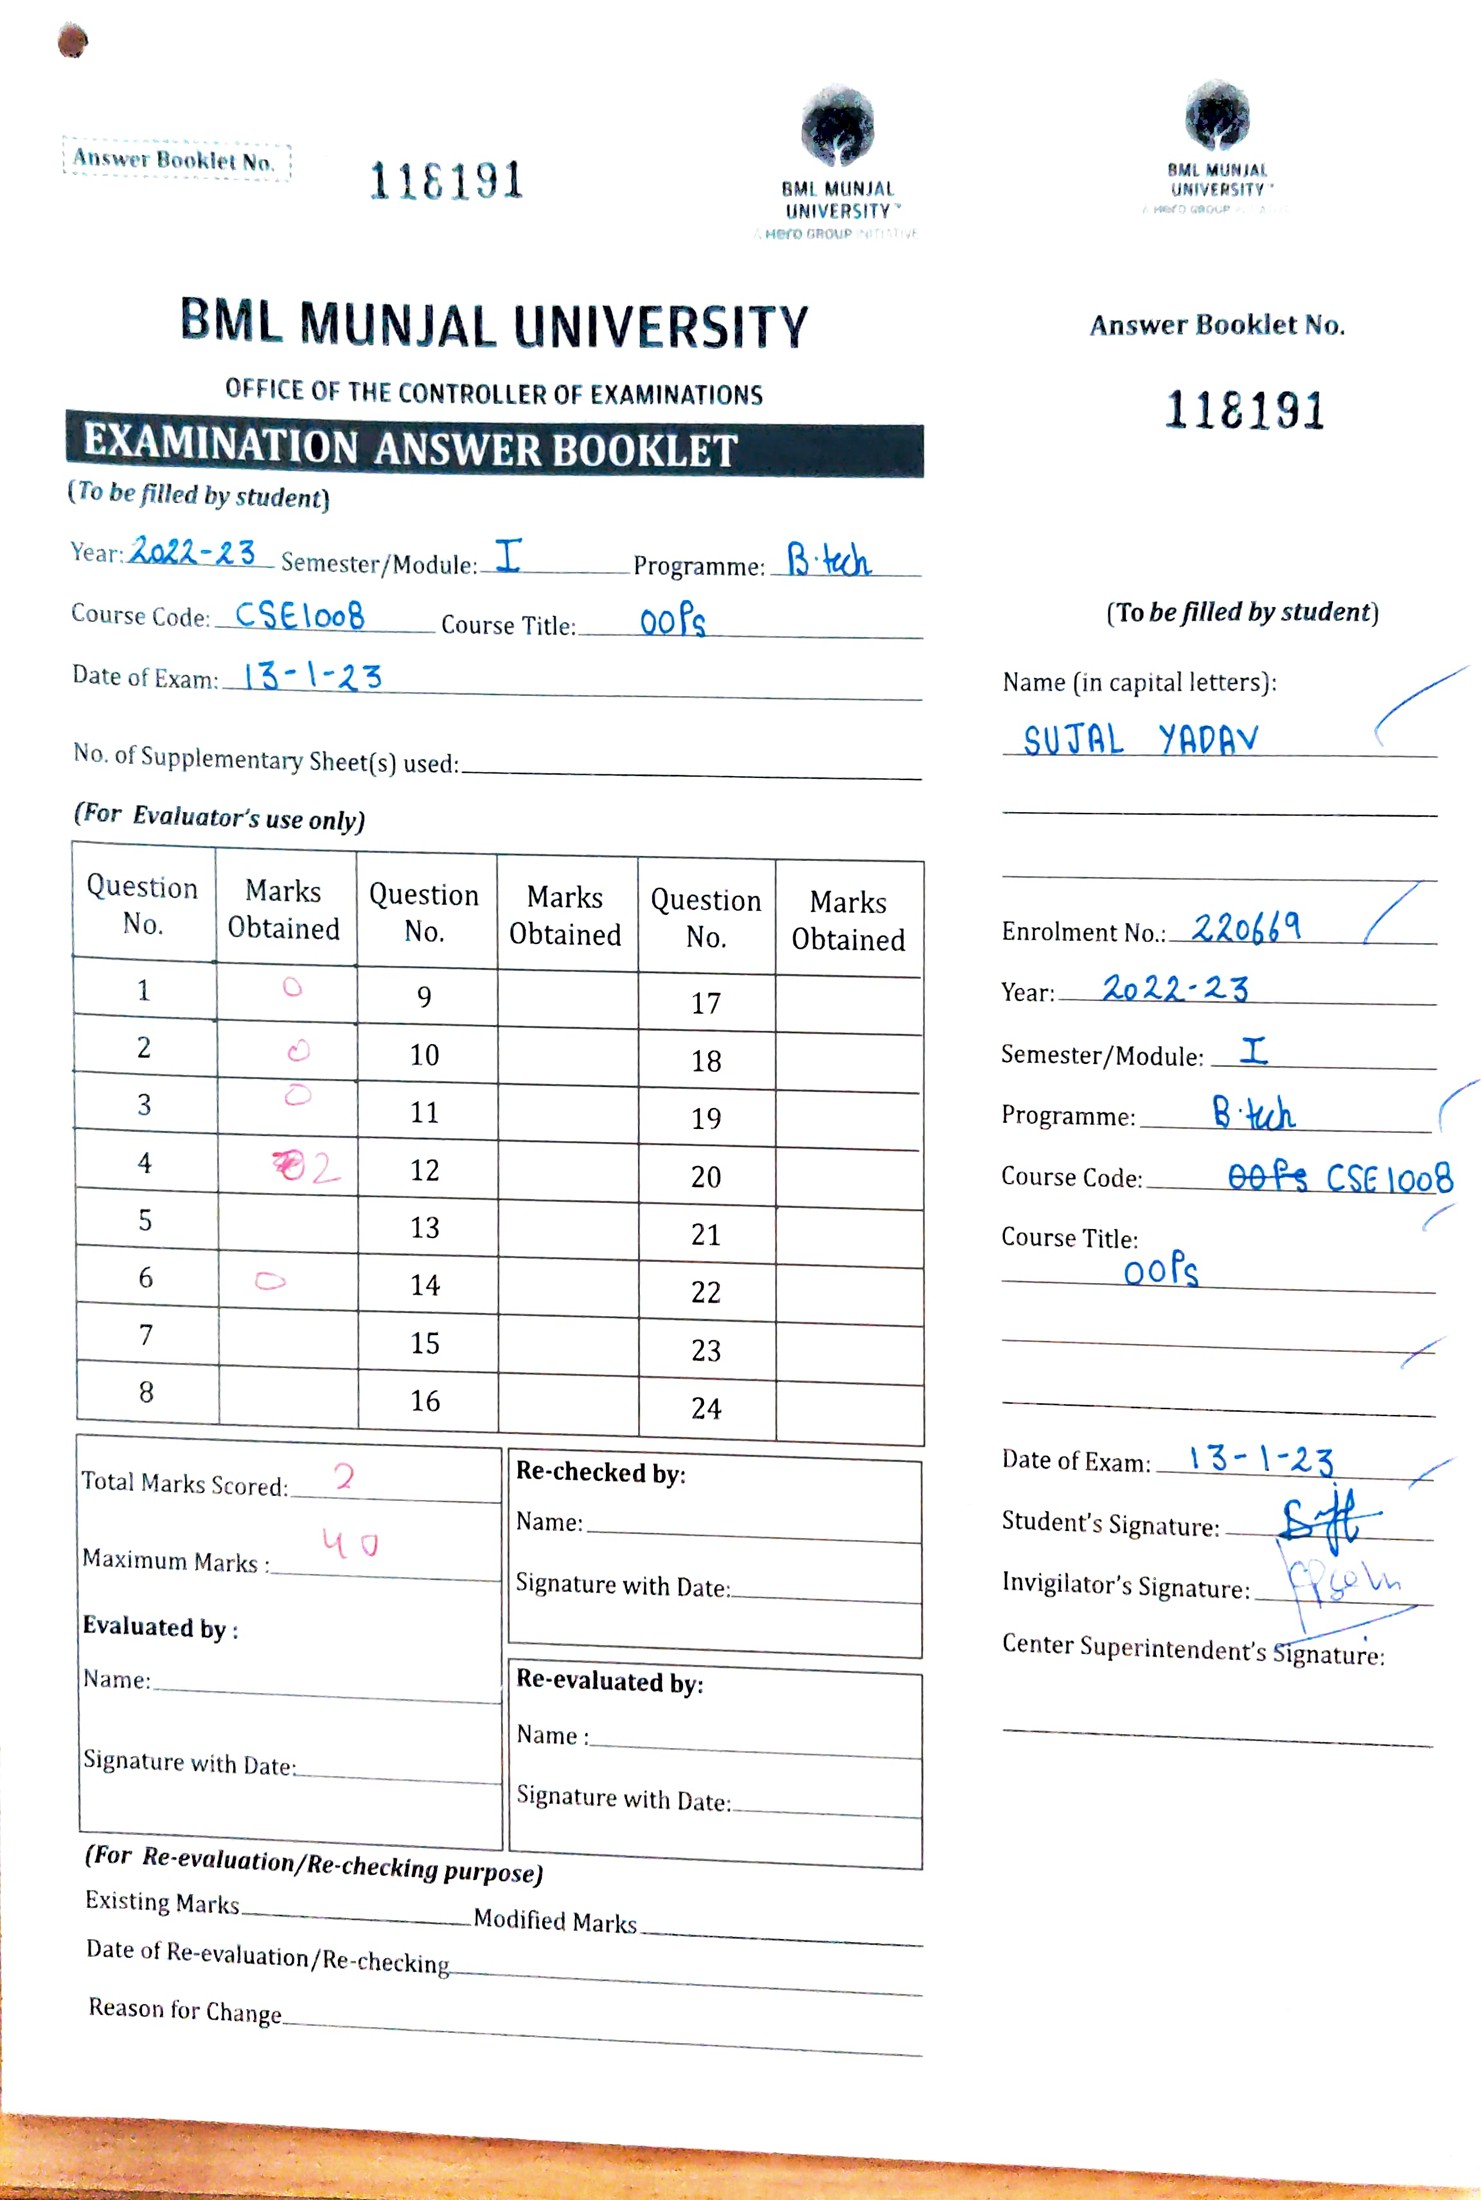 Answer Booklet No. 118191
BML MUNJAL
UNIVERSITY
A Hero GROUP INITIATIVE
BML MUNJAL UNIVERSITY
OFFICE OF THE CONTROLLER OF EXAMINATIONS
EXAMINATION ANSWER BOOKLET
(To be filled by student)
Year: 2022-23 Semester/Module: I Programme: B.tech
Course Code: CSE1008 Course Title: OOPs
Date of Exam: 13-1-23
No. of Supplementary Sheet(s) used:
(For Evaluator's use only)
Question No. Marks Obtained Question No. Marks Obtained Question No. Marks Obtained
1 0 9 17
2 0 10 18
3 0 11 19
4 02 12 20
5 13 21
6 0 14 22
7 15 23
8 16 24
Total Marks Scored: 2
Maximum Marks : 40
Evaluated by :
Name:
Signature with Date:
Re-checked by:
Name:
Signature with Date:
Re-evaluated by:
Name :
Signature with Date:
(For Re-evaluation/Re-checking purpose)
Existing Marks Modified Marks
Date of Re-evaluation/Re-checking
Reason for Change
BML MUNJAL
UNIVERSITY
A Hero GROUP
Answer Booklet No.
118191
(To be filled by student)
Name (in capital letters):
SUJAL YADAV
Enrolment No.: 220669
Year: 2022-23
Semester/Module: I
Programme: B.tech
Course Code: OOPs CSE1008
Course Title:
OOPs
Date of Exam: 13-1-23
Student's Signature:
Invigilator's Signature:
Center Superintendent's Signature: